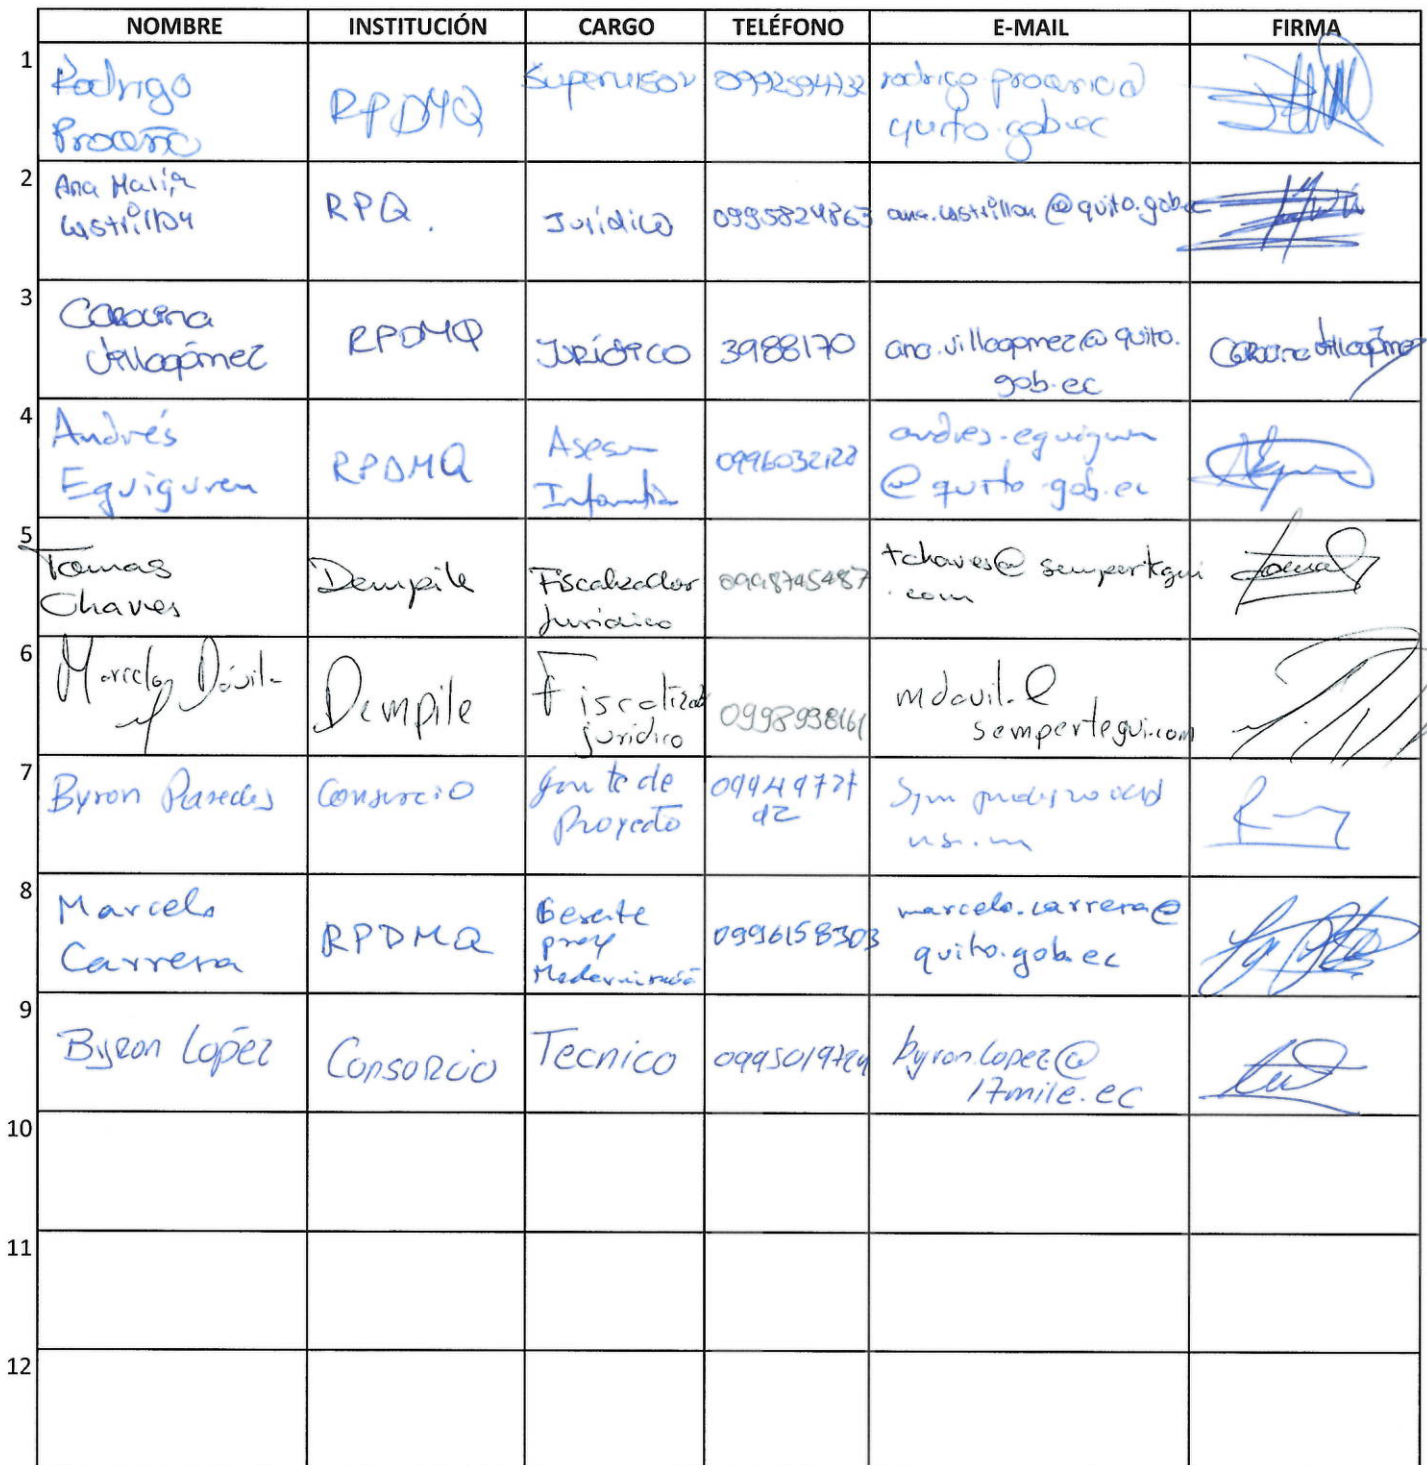 NOMBRE INSTITUCIÓN CARGO TELÉFONO E-MAIL FIRMA
1
Rodrigo
Proaño
RPDMQ
Supervisor
0992594732
quito.gob.ec
2
Ana María
Castrillón
RPQ.
Jurídico
0995824863
ana.castrillon@quito.gob.ec
3
Carolina
Villagómez
RPDMQ
Jurídico
3988170
ana.villagomez@quito.
gob.ec
Carolina Villagómez
4
Andrés
Eguiguren
RPDMQ
Asesor
0996032122
andres.eguiguren
@quito.gob.ec
5
Tomas
Chaves
Dempile
Fiscalizador
Jurídico
0998745487
tchaves@sempertegui
.com
6
Marcelo Dávila
Dempile
Fiscalizador
jurídico
0998938161
mdavila@
sempertegui.com
7
Byron Paredes
Consorcio
Proyecto
8
Marcelo
Carrera
RPDMQ
Gerente
proy
Modernización
0996158303
marcelo.carrera@
quito.gob.ec
9
Byron López
Consorcio
Tecnico
byron.lopez@
17mile.ec
10
11
12